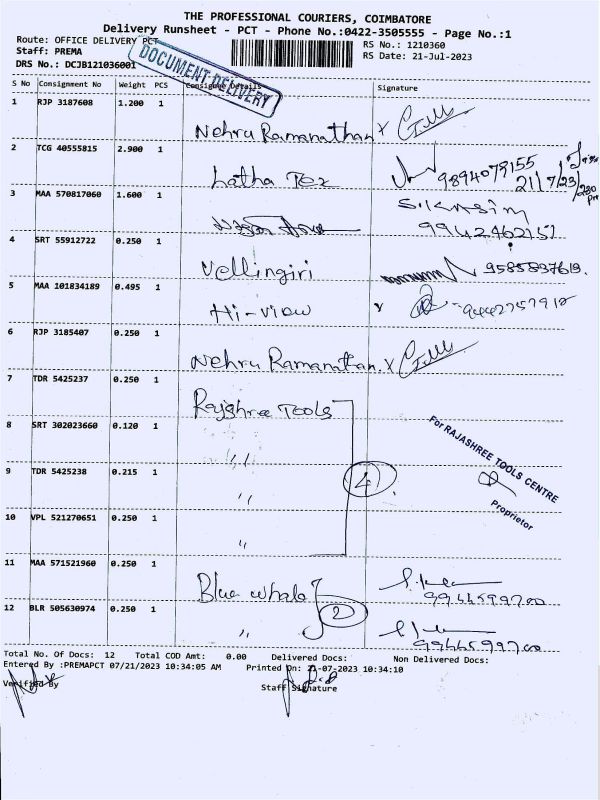 THE PROFESSIONAL COURIERS, COIMBATORE
Delivery Runsheet - PCT - Phone No.:0422-3505555 - Page No.:1
Route: OFFICE DELIVERY PCT
RS No.: 1210360
Staff: PREMA
RS Date: 21-Jul-2023
DRS No.: DCJB121036001
DOCUMENT DELIVERY
S No Consignment No Weight PCS Consignee Details Signature
1 RJP 3187608 1.200 1
Nehru Ramanathan X
2 TCG 40555815 2.900 1
Latha Tex 9894079155
21/7/23
3 MAA 570817060 1.600 1
S.Kassim
99442462157
4 SRT 55912722 0.250 1
Vellingiri 9585837619.
5 MAA 101834189 0.495 1
Hi-view
6 RJP 3185407 0.250 1
Nehru Ramanathan. X
7 TDR 5425237 0.250 1
Rajshree Tools
8 SRT 302023660 0.120 1
,,
For RAJASHREE TOOLS CENTRE
9 TDR 5425238 0.215 1
,, 4
Proprietor
10 VPL 521270651 0.250 1
,,
11 MAA 571521960 0.250 1
Blue whale
9944599700
12 BLR 505630974 0.250 1
,, 2
9944599700
Total No. Of Docs: 12 Total COD Amt: 0.00 Delivered Docs: Non Delivered Docs:
Entered By :PREMAPCT 07/21/2023 10:34:05 AM Printed On: 21-07-2023 10:34:10
Verified By
Staff Signature